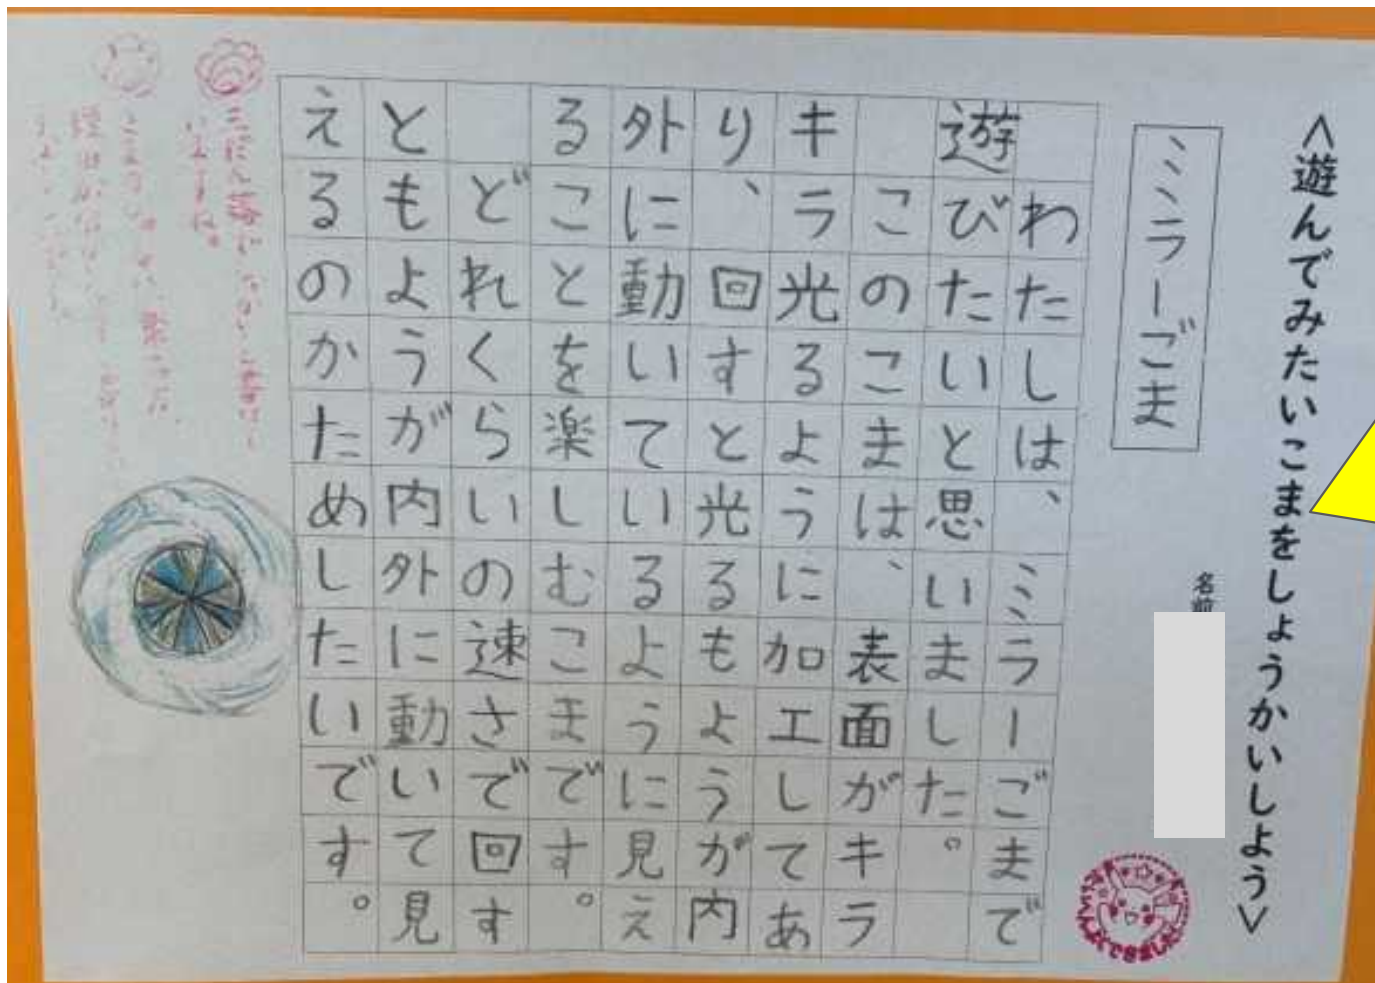 <遊んでみたいこまをしょうかいしよう>
名前
ミラーごま
わたしは、ミラーごまで
遊びたいと思いました。
このこまは、表面がキラ
キラ光るように加工してあ
り、回すと光るもようが内
外に動いているように見え
ることを楽しむこまです。
どれくらいの速さで回す
ともようが内外に動いて見
えるのかためしたいです。